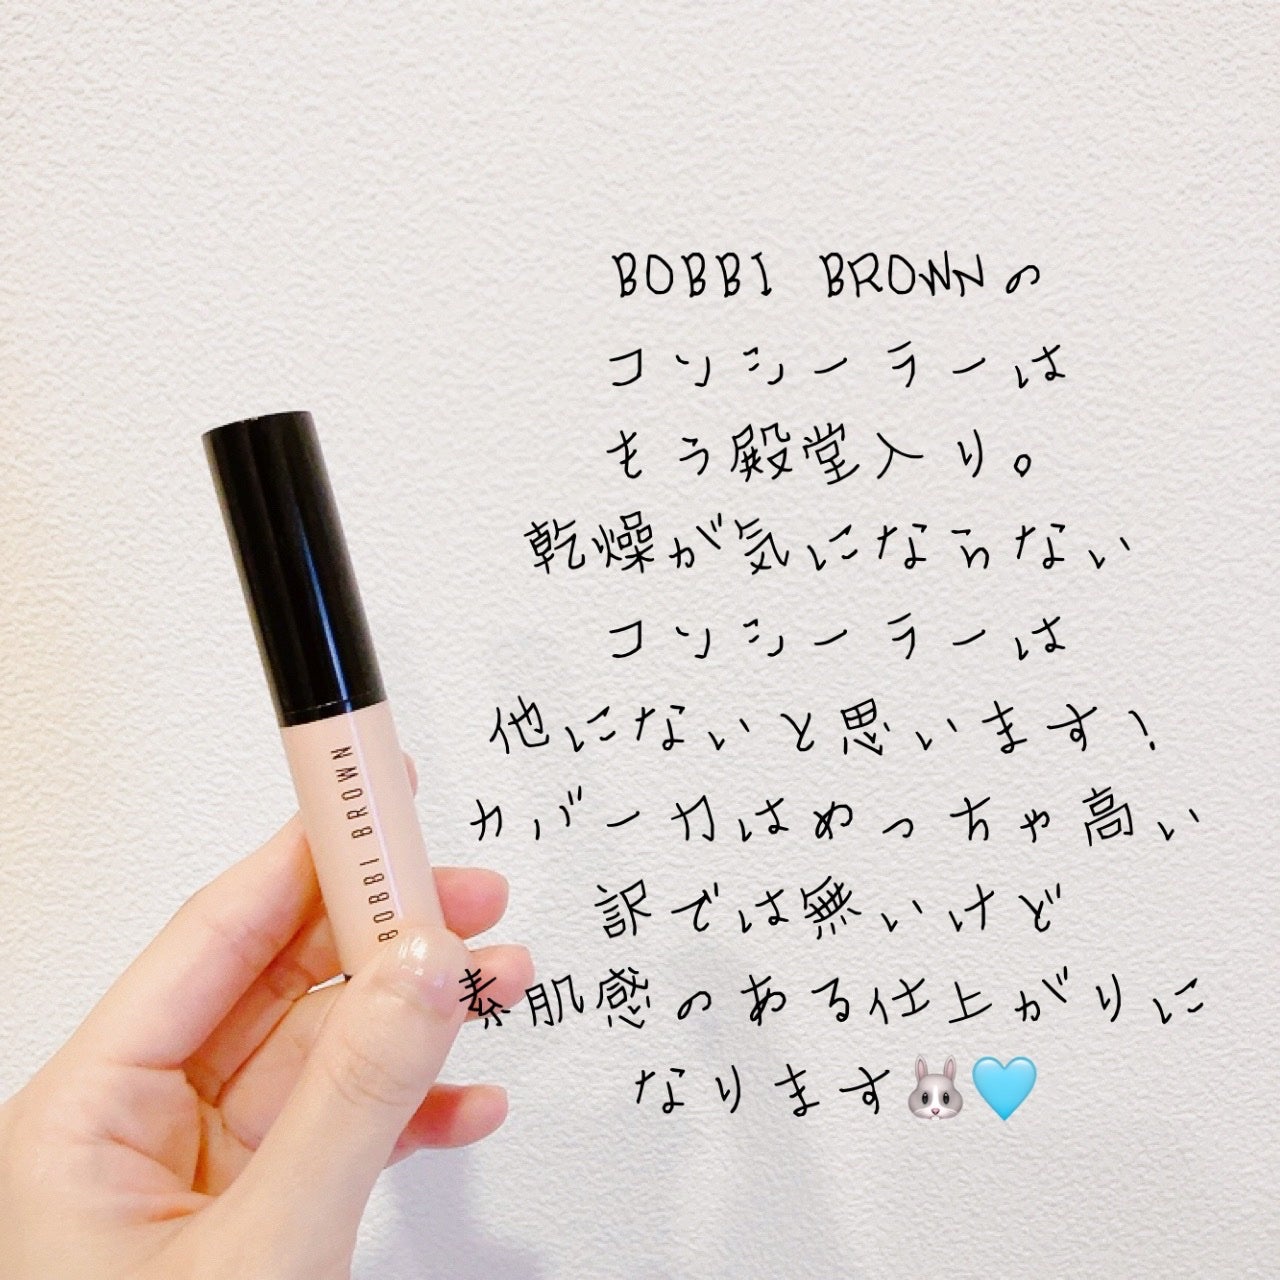 BOBBI BROWNの
コンシーラーは
もう殿堂入り。
乾燥が気にならない
コンシーラーは
他にないと思います！
カバー力はめっちゃ高い
訳では無いけど
素肌感のある仕上がりに
なります🐰🩵
BOBBI BROWN